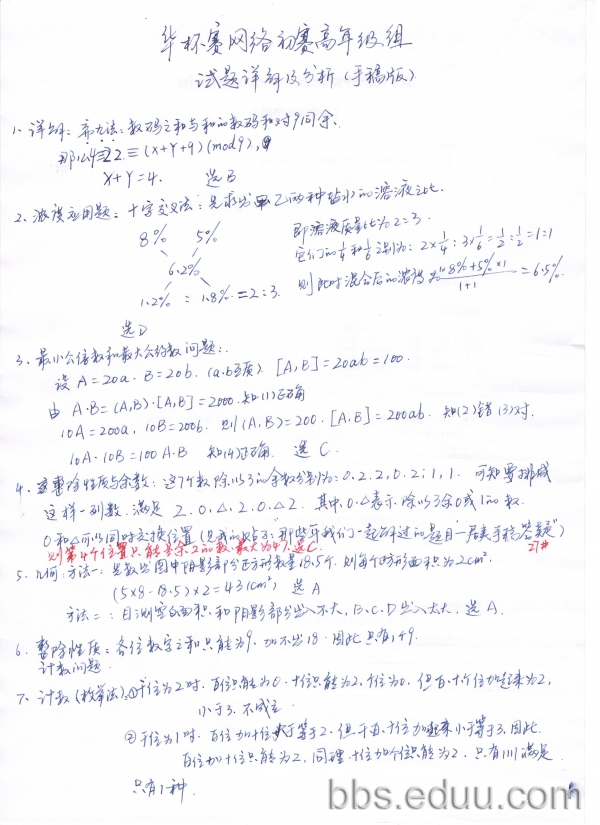 华杯赛网络初赛高年级组
试题详解及分析(手稿版)
1、详解:弃九法:数码之和与和的数码和对9同余、
那么4≡22≡(X+Y+9)(mod9),
X+Y=4. 选B
2、浓度应用题:十字交叉法:先求出甲乙两种盐水的溶液之比.
8% 5%
6.2%
1.2% = 1.8% =2:3.
即溶液质量比为2:3.
它们的1/4和1/6分别为:2×1/4:3×1/6=1/2:1/2=1:1
则此时混合后的浓度为 1×8%+5%×1 / 1+1 =6.5%
选D
3、最小公倍数和最大公约数问题:
设A=20a.B=20b.(a.b互质).[A,B]=20ab=100.
由A·B=(A,B)·[A,B]=2000.知(1)正确
10A=200a,10B=200b.则(A,B)=200.[A,B]=200ab.知(2)错(3)对.
10A·10B=100A·B 知(4)正确. 选C.
4、整除性质与余数:这7个数除以3的余数分别为:0.2.2,0.2;1,1. 可知要排成
这样一列数.满足 2.0.△.2.0.△2 其中.0.△表示除以3余0或1的数.
0和△可以同时交换位置(见我的贴子:那些年我们一起解过的题目一启奥手稿答卷")
则第4个位置只能是余2的数.最大为47.选C.
27#
5、几何:方法一:先数出图中阴影部分正方形数量18.5个.则每个方形面积为2cm².
(5×8-18.5)×2=43(cm²) 选A
方法二:目测空白面积.和阴影部分出入不大,B.C.D出入太大,选A.
6、整除性质:各位数字之和只能为9.切不出18.因此只有1个9.
计数问题.
7、计数(枚举法)①千位为2时.百位只能为0.十位只能为2,个位为0.但百.十.个位加起来为2,
小于3.不成立.
②千位为1时.百位加十位大于等于2.但千.百.十位加起来小于等于3.因此
百位加十位只能为2,同理.十位加个位只能为2.只有1111满足.
只有1种.
bbs.eduu.com